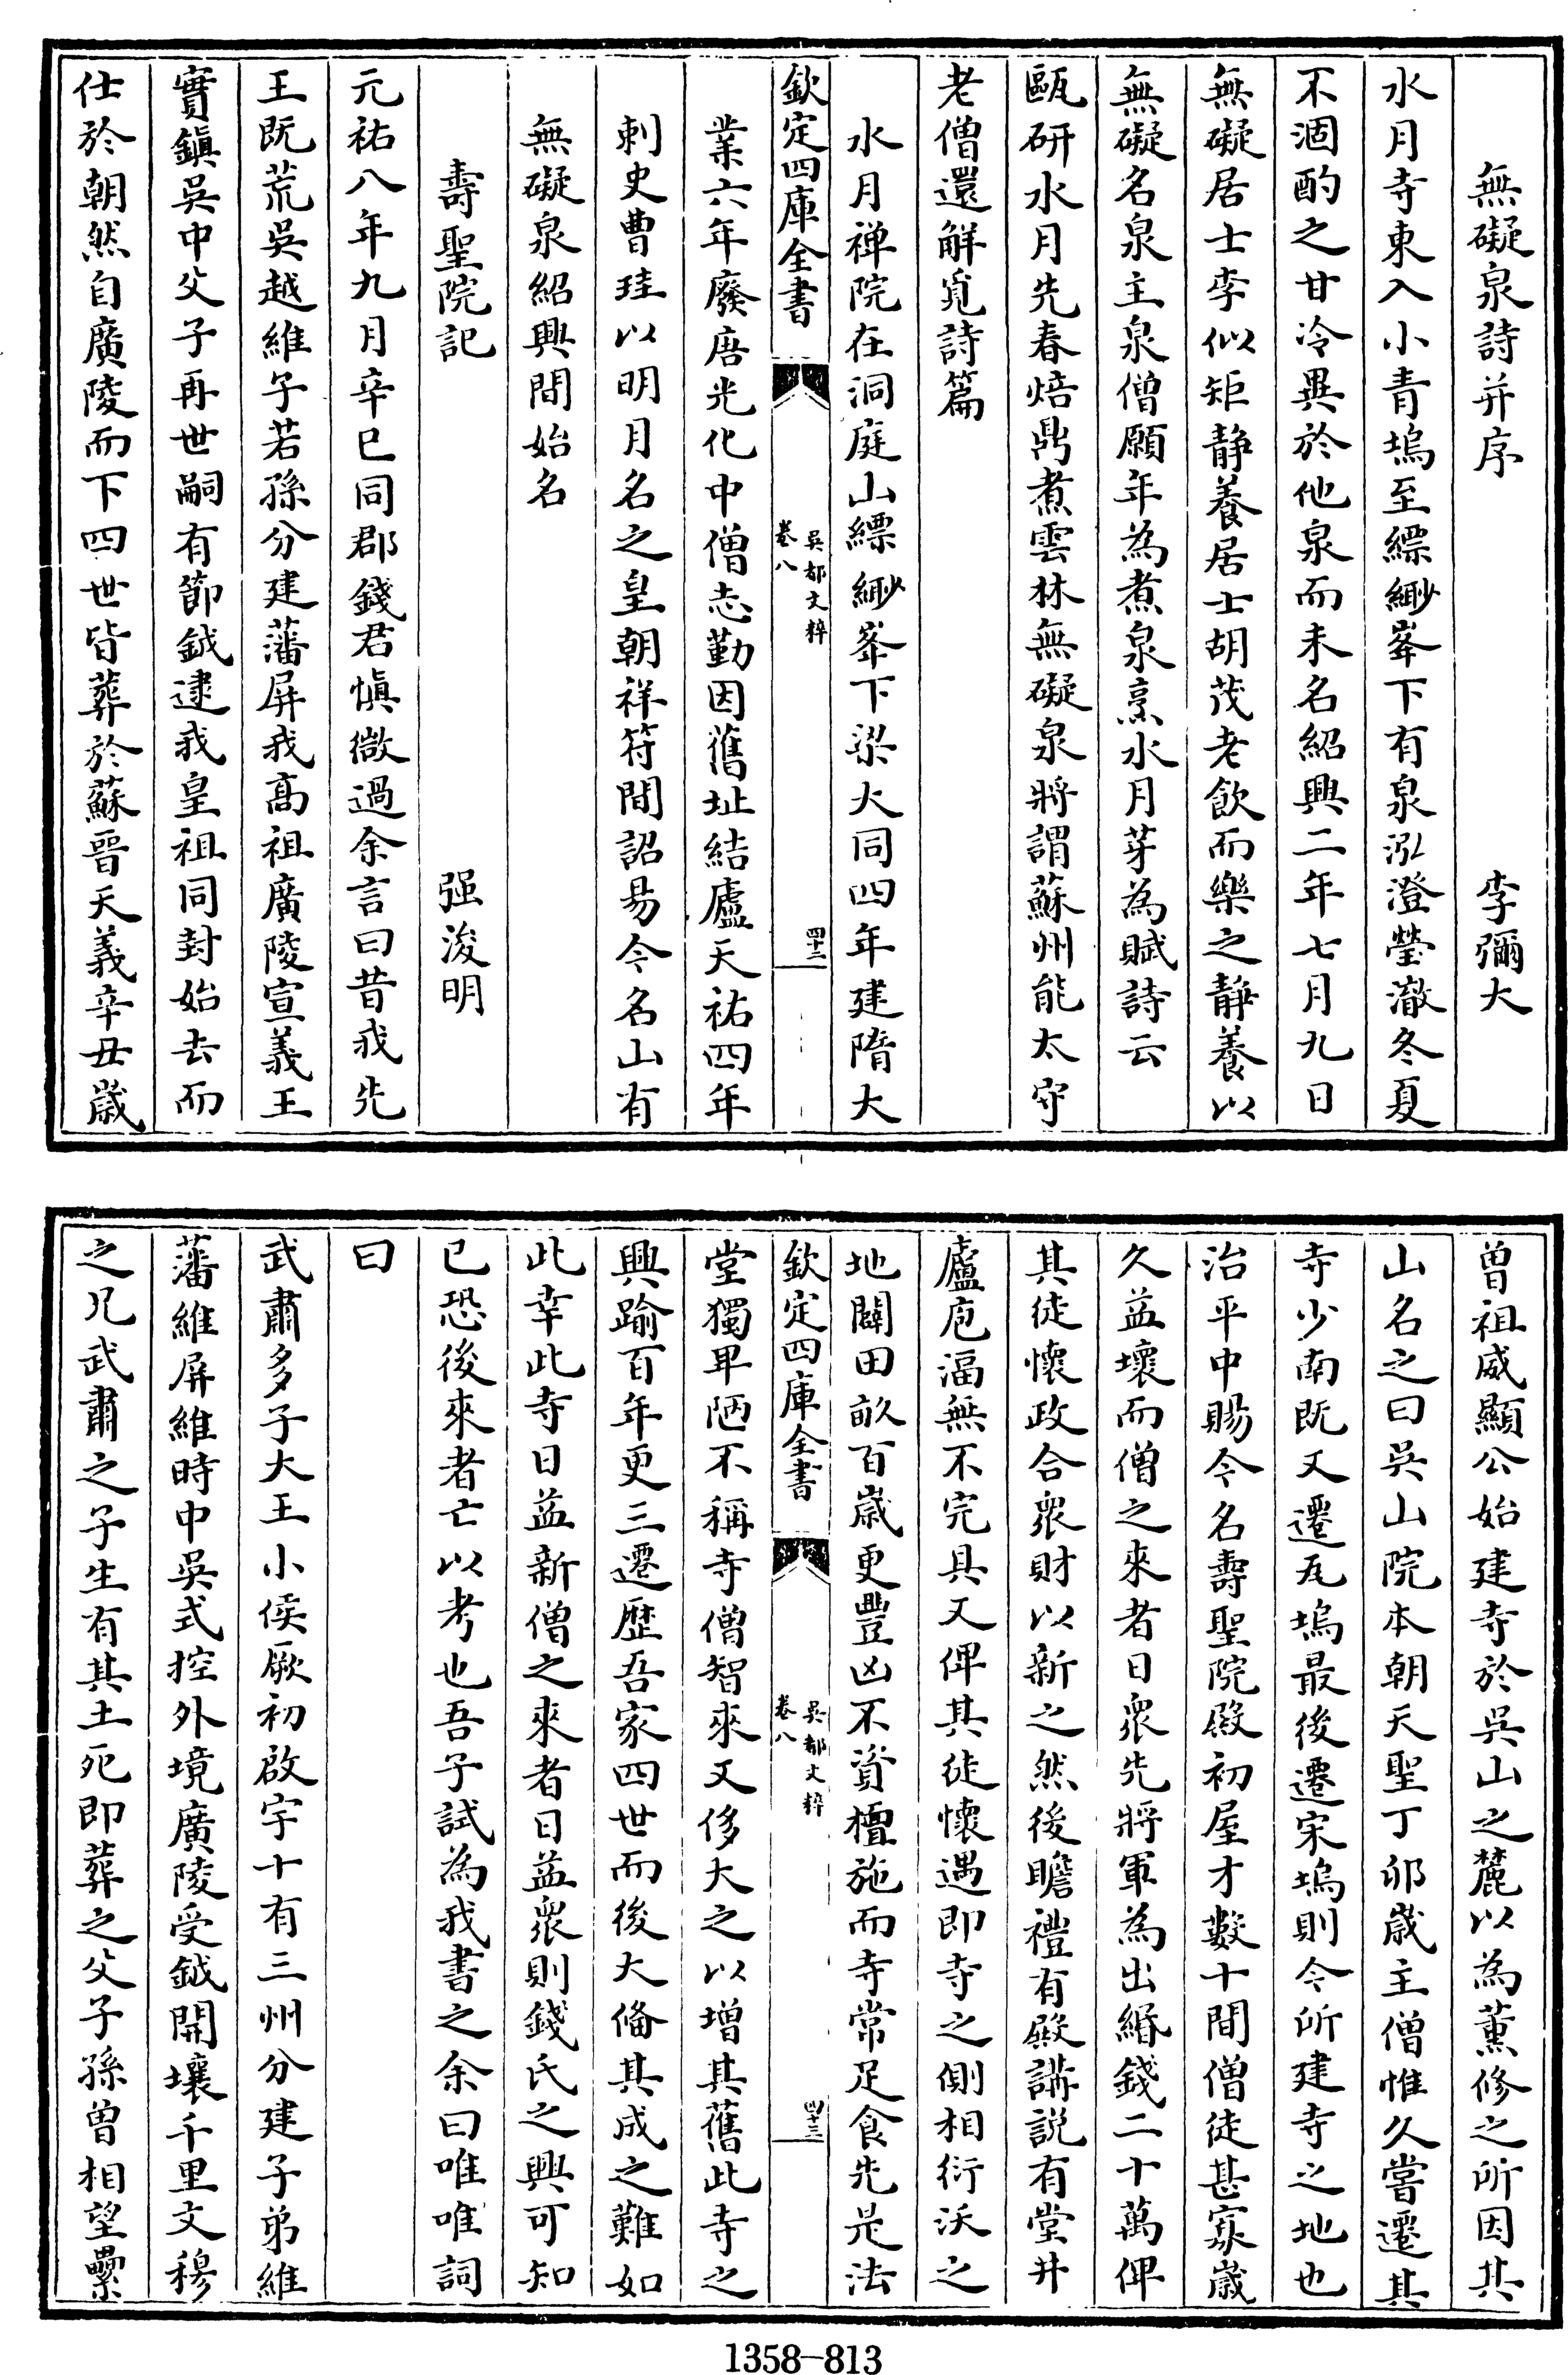 無礙泉詩并序　李彌大
水月寺東入小青塢至縹緲峯下有泉泓澄瑩澈冬夏
不涸酌之甘冷異於他泉而未名紹興二年七月九日
無礙居士李似矩靜養居士胡茂老飲而樂之靜養以
無礙名泉主泉僧願年為煮泉烹水月芽為賦詩云
甌研水月先春焙鼎煮雲林無礙泉將謂蘇州能太守
老僧還解覓詩篇
水月禪院在洞庭山縹緲峯下梁大同四年建隋大
欽定四庫全書　吳都文粹　卷八　四十二
業六年廢唐光化中僧志勤因舊址結廬天祐四年
刺史曹珪以明月名之皇朝祥符間詔易今名山有
無礙泉紹興間始名
壽聖院記　强浚明
元祐八年九月辛巳同郡錢君愼微過余言曰昔我先
王既荒吳越維子若孫分建藩屏我高祖廣陵宣義王
實鎮吳中父子再世嗣有節鉞逮我皇祖同封始去而
仕於朝然自廣陵而下四世皆葬於蘇晉天義辛丑歲
曾祖威顯公始建寺於吳山之麓以為薰修之所因其
山名之曰吳山院本朝天聖丁卯歲主僧惟久嘗遷其
寺少南既又遷瓦塢最後遷宋塢則今所建寺之地也
治平中賜今名壽聖院殿初屋才數十間僧徒甚寡歲
久益壞而僧之來者日衆先將軍為出緡錢二十萬俾
其徒懷政合衆財以新之然後瞻禮有殿講説有堂井
廬庖湢無不完具又俾其徒懷遇即寺之側相衍沃之
地闢田畝百歲更豐凶不資檀施而寺常足食先是法
欽定四庫全書　吳都文粹　卷八　四十三
堂獨卑陋不稱寺僧智來又侈大之以增其舊此寺之
興踰百年更三遷歷吾家四世而後大備其成之難如
此幸此寺日益新僧之來者日益衆則錢氏之興可知
已恐後來者亡以考也吾子試為我書之余曰唯唯詞
曰
武肅多子大王小侯厥初啟宇十有三州分建子弟維
藩維屏維時中吳式控外境廣陵受鉞開壤千里文穆
之兄武肅之子生有其土死即葬之父子孫曾相望纍
1358-813